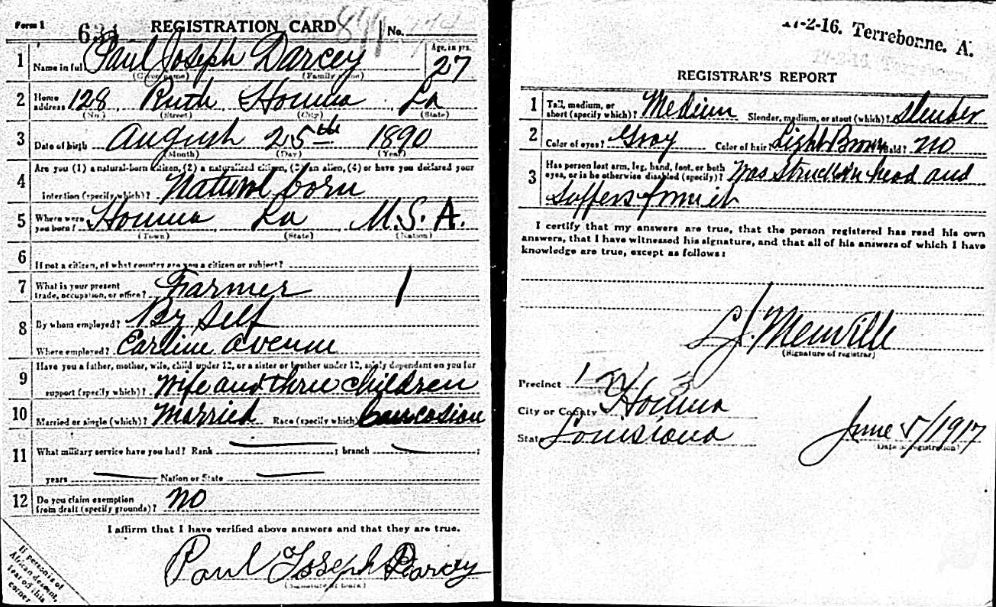 Form 1
634
REGISTRATION CARD
No.
1 Name in full Paul Joseph Darcey Age, in yrs. 27
(Given name) (Family name)
2 Home address 128 Ruth Houma La
(No.) (City) (State)
3 Date of birth August 25th 1890
(Month) (Day) (Year)
4 Are you (1) a natural-born citizen, (2) a naturalized citizen, (3) an alien, (4) or have you declared your
intention (specify which)? Natural born
5 Where were you born? Houma La U.S.A.
(Town) (State) (Nation)
6 If not a citizen, of what country are you a citizen or subject?
7 What is your present trade, occupation, or office? Farmer 1
8 By whom employed? By Self
Where employed? avenue
9 Have you a father, mother, wife, child under 12, or a sister or brother under 12, solely dependent on you for
support (specify which)? Wife and three children
10 Married or single (which)? Married Race (specify which)? Caucasian
11 What military service have you had? Rank ; branch ;
years Nation or State
12 Do you claim exemption from draft (specify grounds)? No
I affirm that I have verified above answers and that they are true.
Paul Joseph Darcey
If person is of
African descent,
tear off this
corner
17-2-16. Terrebonne. A.
REGISTRAR'S REPORT
1 Tall, medium, or short (specify which)? Medium Slender, medium, or stout (which)? Slender
2 Color of eyes? Gray Color of hair? Light Brown Bald? No
3 Has person lost arm, leg, hand, foot, or both
eyes, or is he otherwise disabled (specify)? Was Struck in head and
Suffers from it
I certify that my answers are true, that the person registered has read his own
answers, that I have witnessed his signature, and that all of his answers of which I have
knowledge are true, except as follows:
L.J. Menville
(Signature of registrar)
Precinct
City or County Houma
State Louisiana
June 5/1917
(Date of registration)